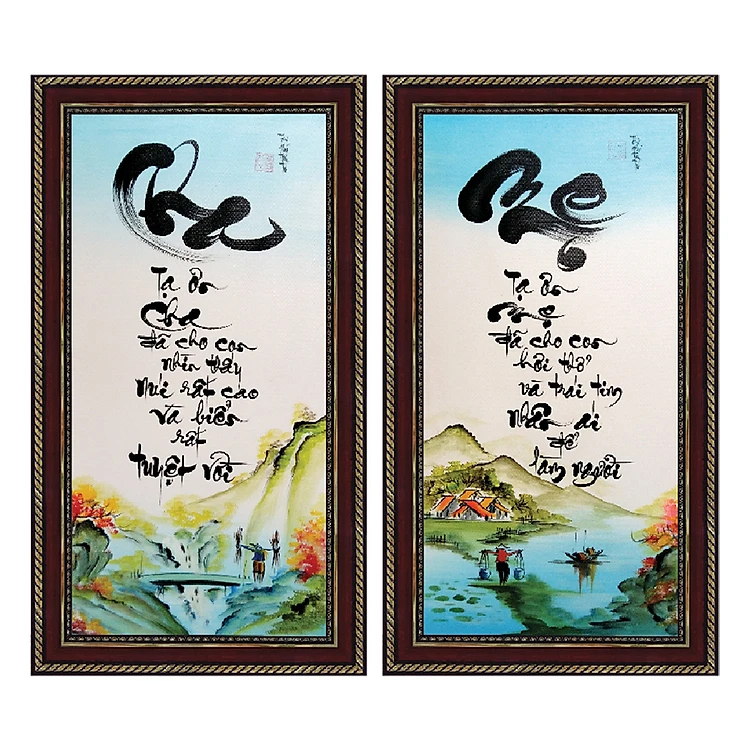 Cha
Tạ ơn
Cha
đã cho con
nhìn thấy
núi rất cao
và biển
rất
tuyệt vời
Mẹ
Tạ ơn
Mẹ
đã cho con
hơi thở
và trái tim
nhân ái
để
làm người